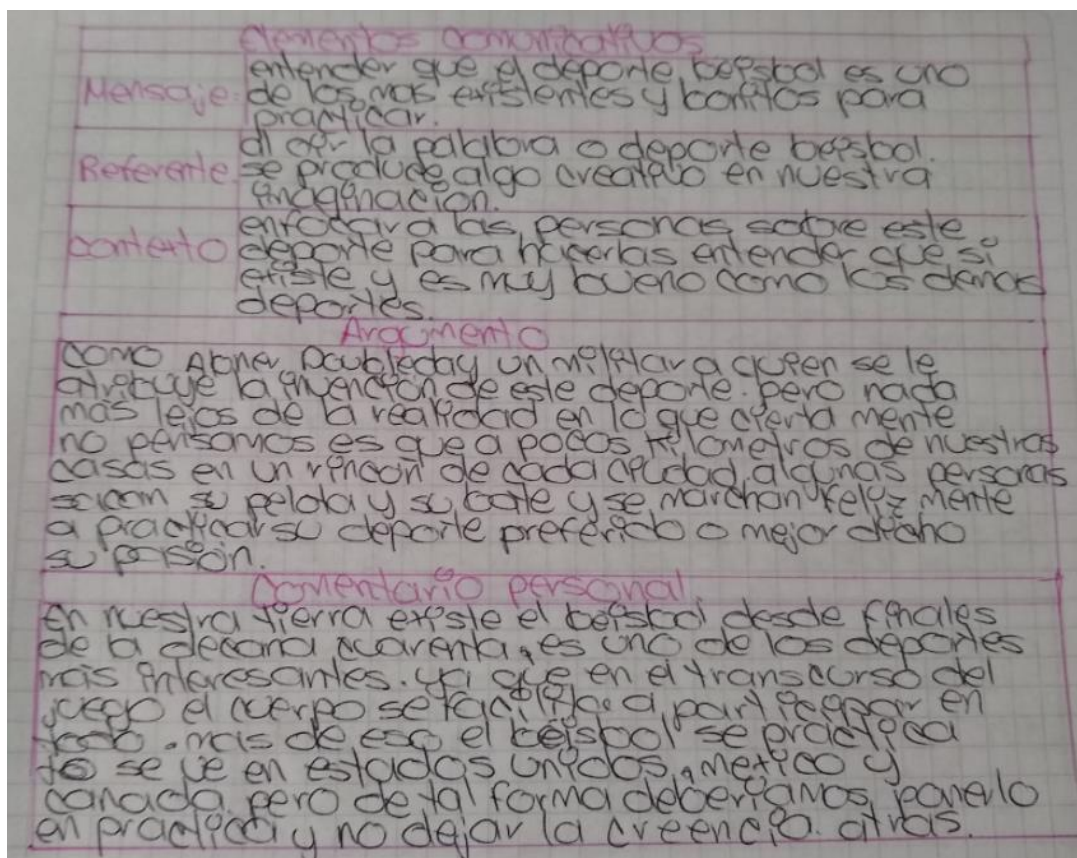 elementos comunicativos
Mensaje: entender que el deporte beisbol es uno
de los mas existentes y bonitos para
practicar.
Referente al oir la palabra o deporte beisbol.
se produce algo creativo en nuestra
imaginación.
contexto enfocar a las personas sobre este
deporte para hacerlas entender que si
existe y es muy bueno como los demas
deportes.
Argumento
como Abner Doubleday un militar a quien se le
atribuye la invención de este deporte. pero nada
mas lejos de la realidad en lo que cierta mente
no pensamos es que a pocos kilometros de nuestras
casas en un rincon de cada ciudad algunas personas
sacan su pelota y su bate y se marchan feliz mente
a practicar su deporte preferido o mejor dicho
su pasión.
Comentario personal
En nuestra tierra existe el beisbol desde finales
de la decana cuarenta, es uno de los deportes
mas interesantes. ya que en el transcurso del
juego el cuerpo se facilita a participar en
todo. mas de eso el beisbol se practica
se ve en estados unidos, mexico y
canada. pero de tal forma deberiamos ponerlo
en practica y no dejar la creencia. atras.